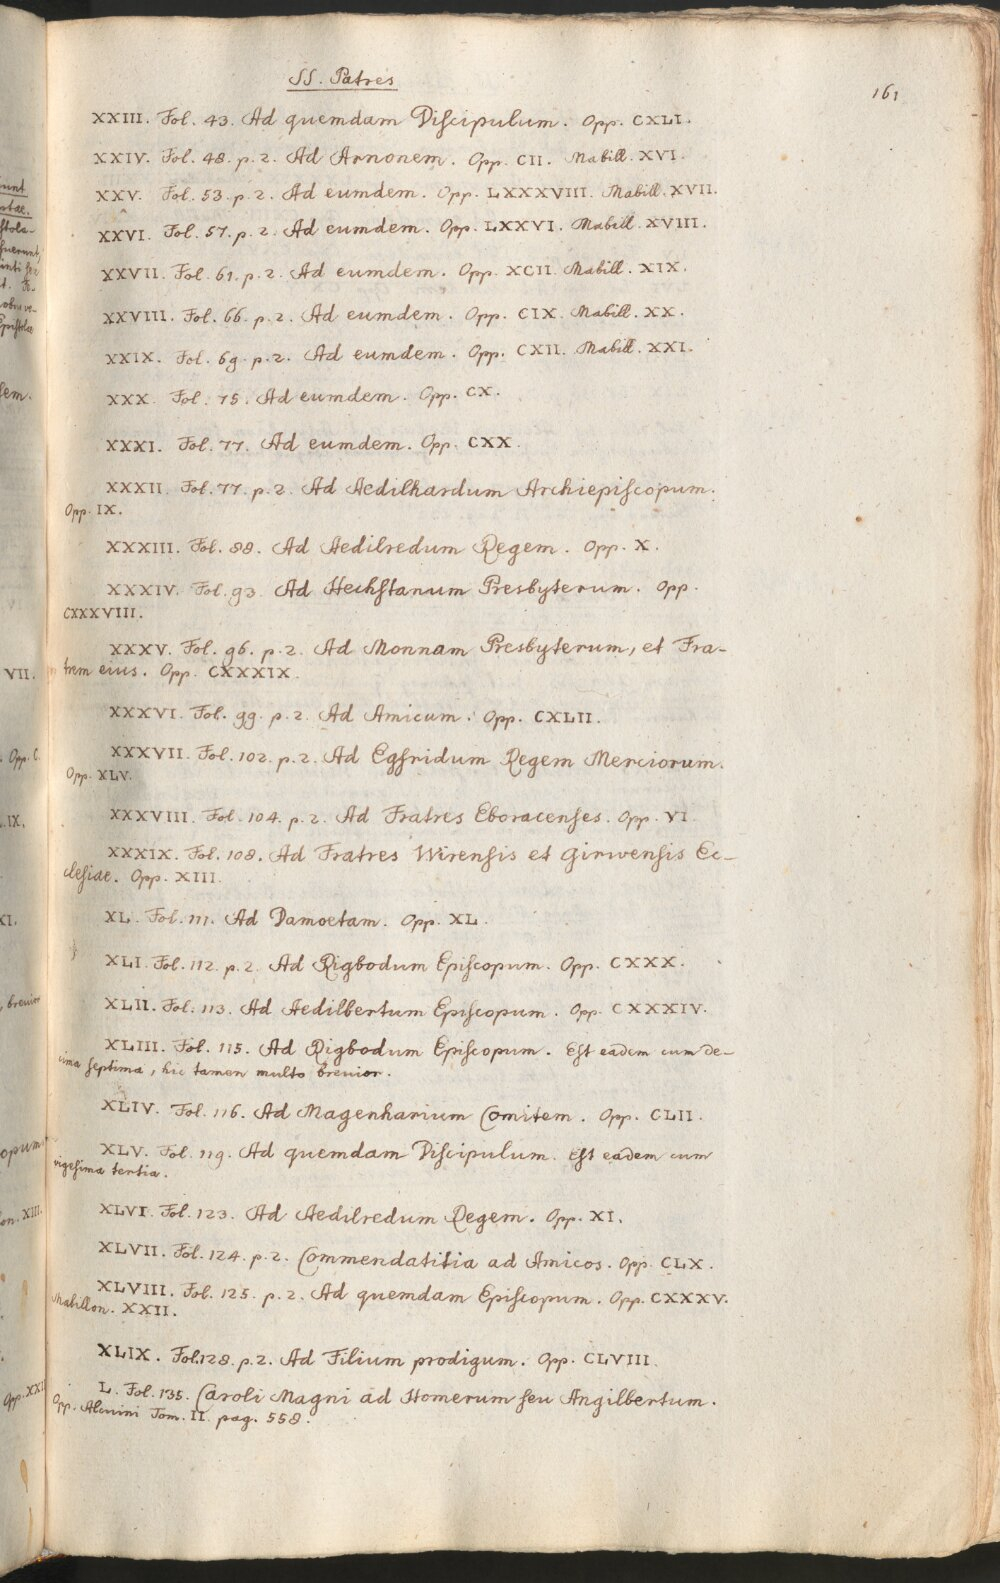 SS. Patres
161
XXIII. Fol. 43. Ad quemdam Discipulum. Opp. CXLI.
XXIV. Fol. 48. p. 2. Ad Arnonem. Opp. CII. Mabill. XVI.
XXV. Fol. 53. p. 2. Ad eumdem. Opp. LXXXVIII. Mabill. XVII.
XXVI. Fol. 57. p. 2. Ad eumdem. Opp. LXXVI. Mabill. XVIII.
XXVII. Fol. 61. p. 2. Ad eumdem. Opp. XCII. Mabill. XIX.
XXVIII. Fol. 66. p. 2. Ad eumdem. Opp. CIX. Mabill. XX.
XXIX. Fol. 69. p. 2. Ad eumdem. Opp. CXII. Mabill. XXI.
XXX. Fol. 75. Ad eumdem. Opp. CX.
XXXI. Fol. 77. Ad eumdem. Opp. CXX.
XXXII. Fol. 77. p. 2. Ad Aedilhardum Archiepiscopum.
Opp. IX.
XXXIII. Fol. 88. Ad Aedilredum Regem. Opp. X.
XXXIV. Fol. 93. Ad Hechstanum Presbyterum. Opp.
CXXXVIII.
XXXV. Fol. 96. p. 2. Ad Monnam Presbyterum, et Fra-
trem eius. Opp. CXXXIX.
XXXVI. Fol. 99. p. 2. Ad Amicum. Opp. CXLII.
XXXVII. Fol. 102. p. 2. Ad Egfridum Regem Merciorum.
Opp. XLV.
XXXVIII. Fol. 104. p. 2. Ad Fratres Eboracenses. Opp. VI.
XXXIX. Fol. 108. Ad Fratres Wirensis et Girwensis Ec-
clesiae. Opp. XIII.
XL. Fol. 111. Ad Damoetam. Opp. XL.
XLI. Fol. 112. p. 2. Ad Rigbodum Episcopum. Opp. CXXX.
XLII. Fol. 113. Ad Aedilbertum Episcopum. Opp. CXXXIV.
XLIII. Fol. 115. Ad Rigbodum Episcopum. Est eadem cum de-
cima septima, hic tamen multo brevior.
XLIV. Fol. 116. Ad Magenharium Comitem. Opp. CLII.
XLV. Fol. 119. Ad quemdam Discipulum. Est eadem cum
vigesima tertia.
XLVI. Fol. 123. Ad Aedilredum Regem. Opp. XI.
XLVII. Fol. 124. p. 2. Commendatitia ad Amicos. Opp. CLX.
XLVIII. Fol. 125. p. 2. Ad quemdam Episcopum. Opp. CXXXV.
Mabillon. XXII.
XLIX. Fol. 128. p. 2. Ad Filium prodigum. Opp. CLVIII.
L. Fol. 135. Caroli Magni ad Homerum seu Angilbertum.
Opp. Alcuini Tom. II. pag. 558.